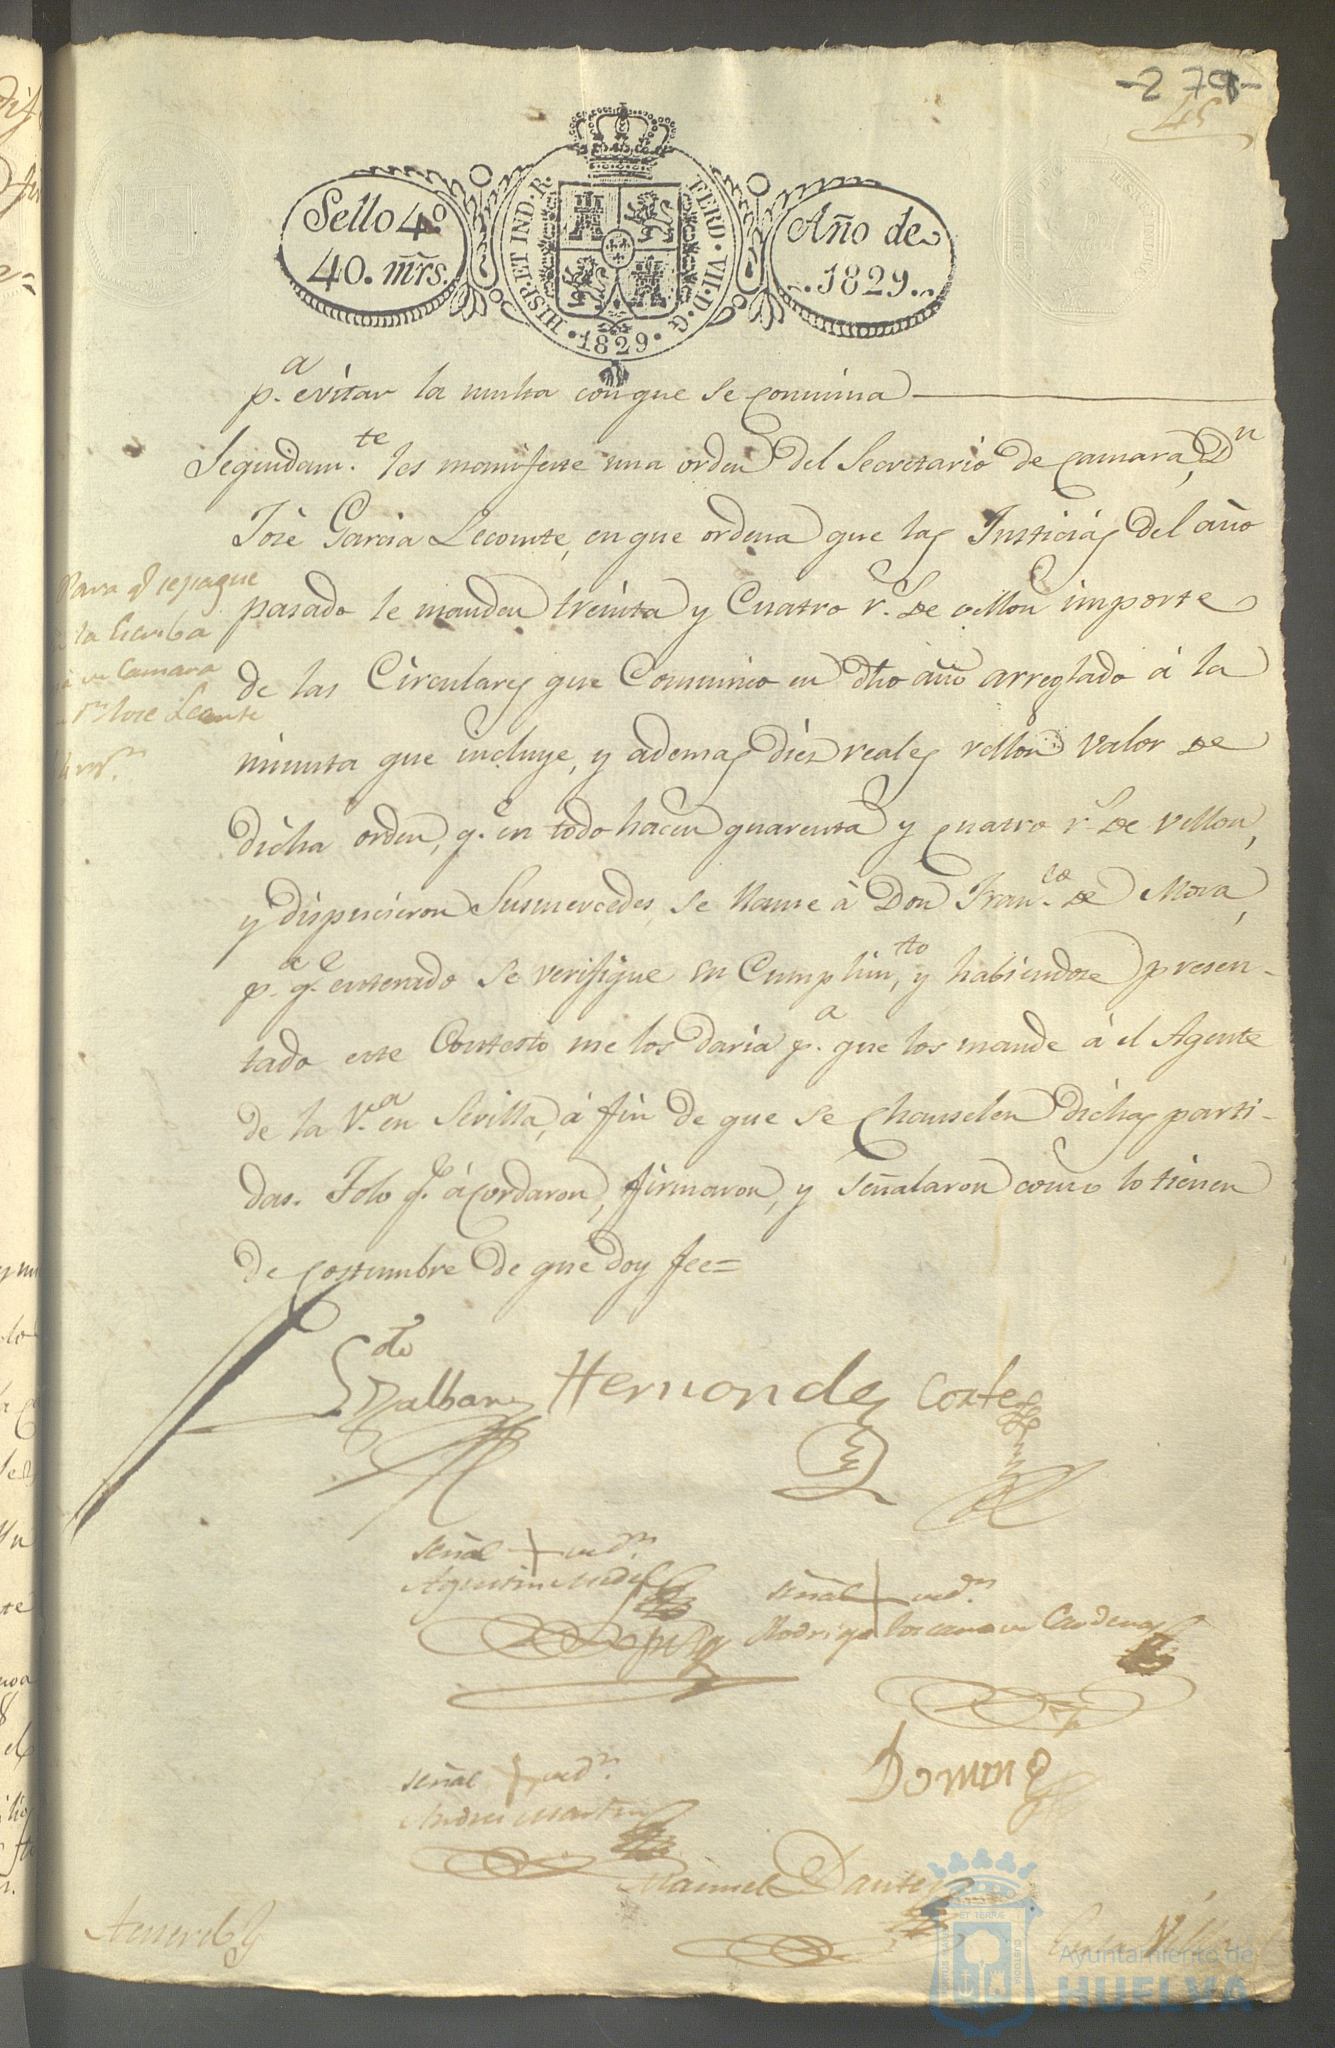 -279-
45
Sello 4º
40. mrs.
HISP. ET IND. R.
FERD. VII. D. G.
1829
Año de
1829
p.a evitar la multa con que se conmina
Seguidam.te les manifeste una orden del Secretario de Camara, Dn
José Garcia Lecomte, en que ordena que las Justicias del año
pasado le manden treinta y Cuatro r.s de vellon importe
de las Circulares que Comunico en dho año arreglado á la
minuta que incluye, y ademas diez reales vellon valor de
dicha orden, q.e en todo hacen quarenta y quatro r.s de vellon,
y dispusieron Susmercedes, se llame à Don Fran.co de Mora,
p.a q.e enterado se verifique su Cumplim.to, y habiendose presen-
tado este Contesto me los daria p.a que los mande á el Agente
de la V.a en Sevilla, á fin de que se chanselen dichas parti-
das. Y olo q.e acordaron, firmaron, y señalaron como lo tienen
de costumbre de que doy fee=
Para q.e se pague
la Escriba
de Camara
Dn Jose Lecomte
Hernandes
Cortes
señal de Dn
Agustin
señal de Dn
Rodrigo de Cardenas
señal de Dn
Andres Martin
Doming
Manuel
Ayuntamiento de
HUELVA